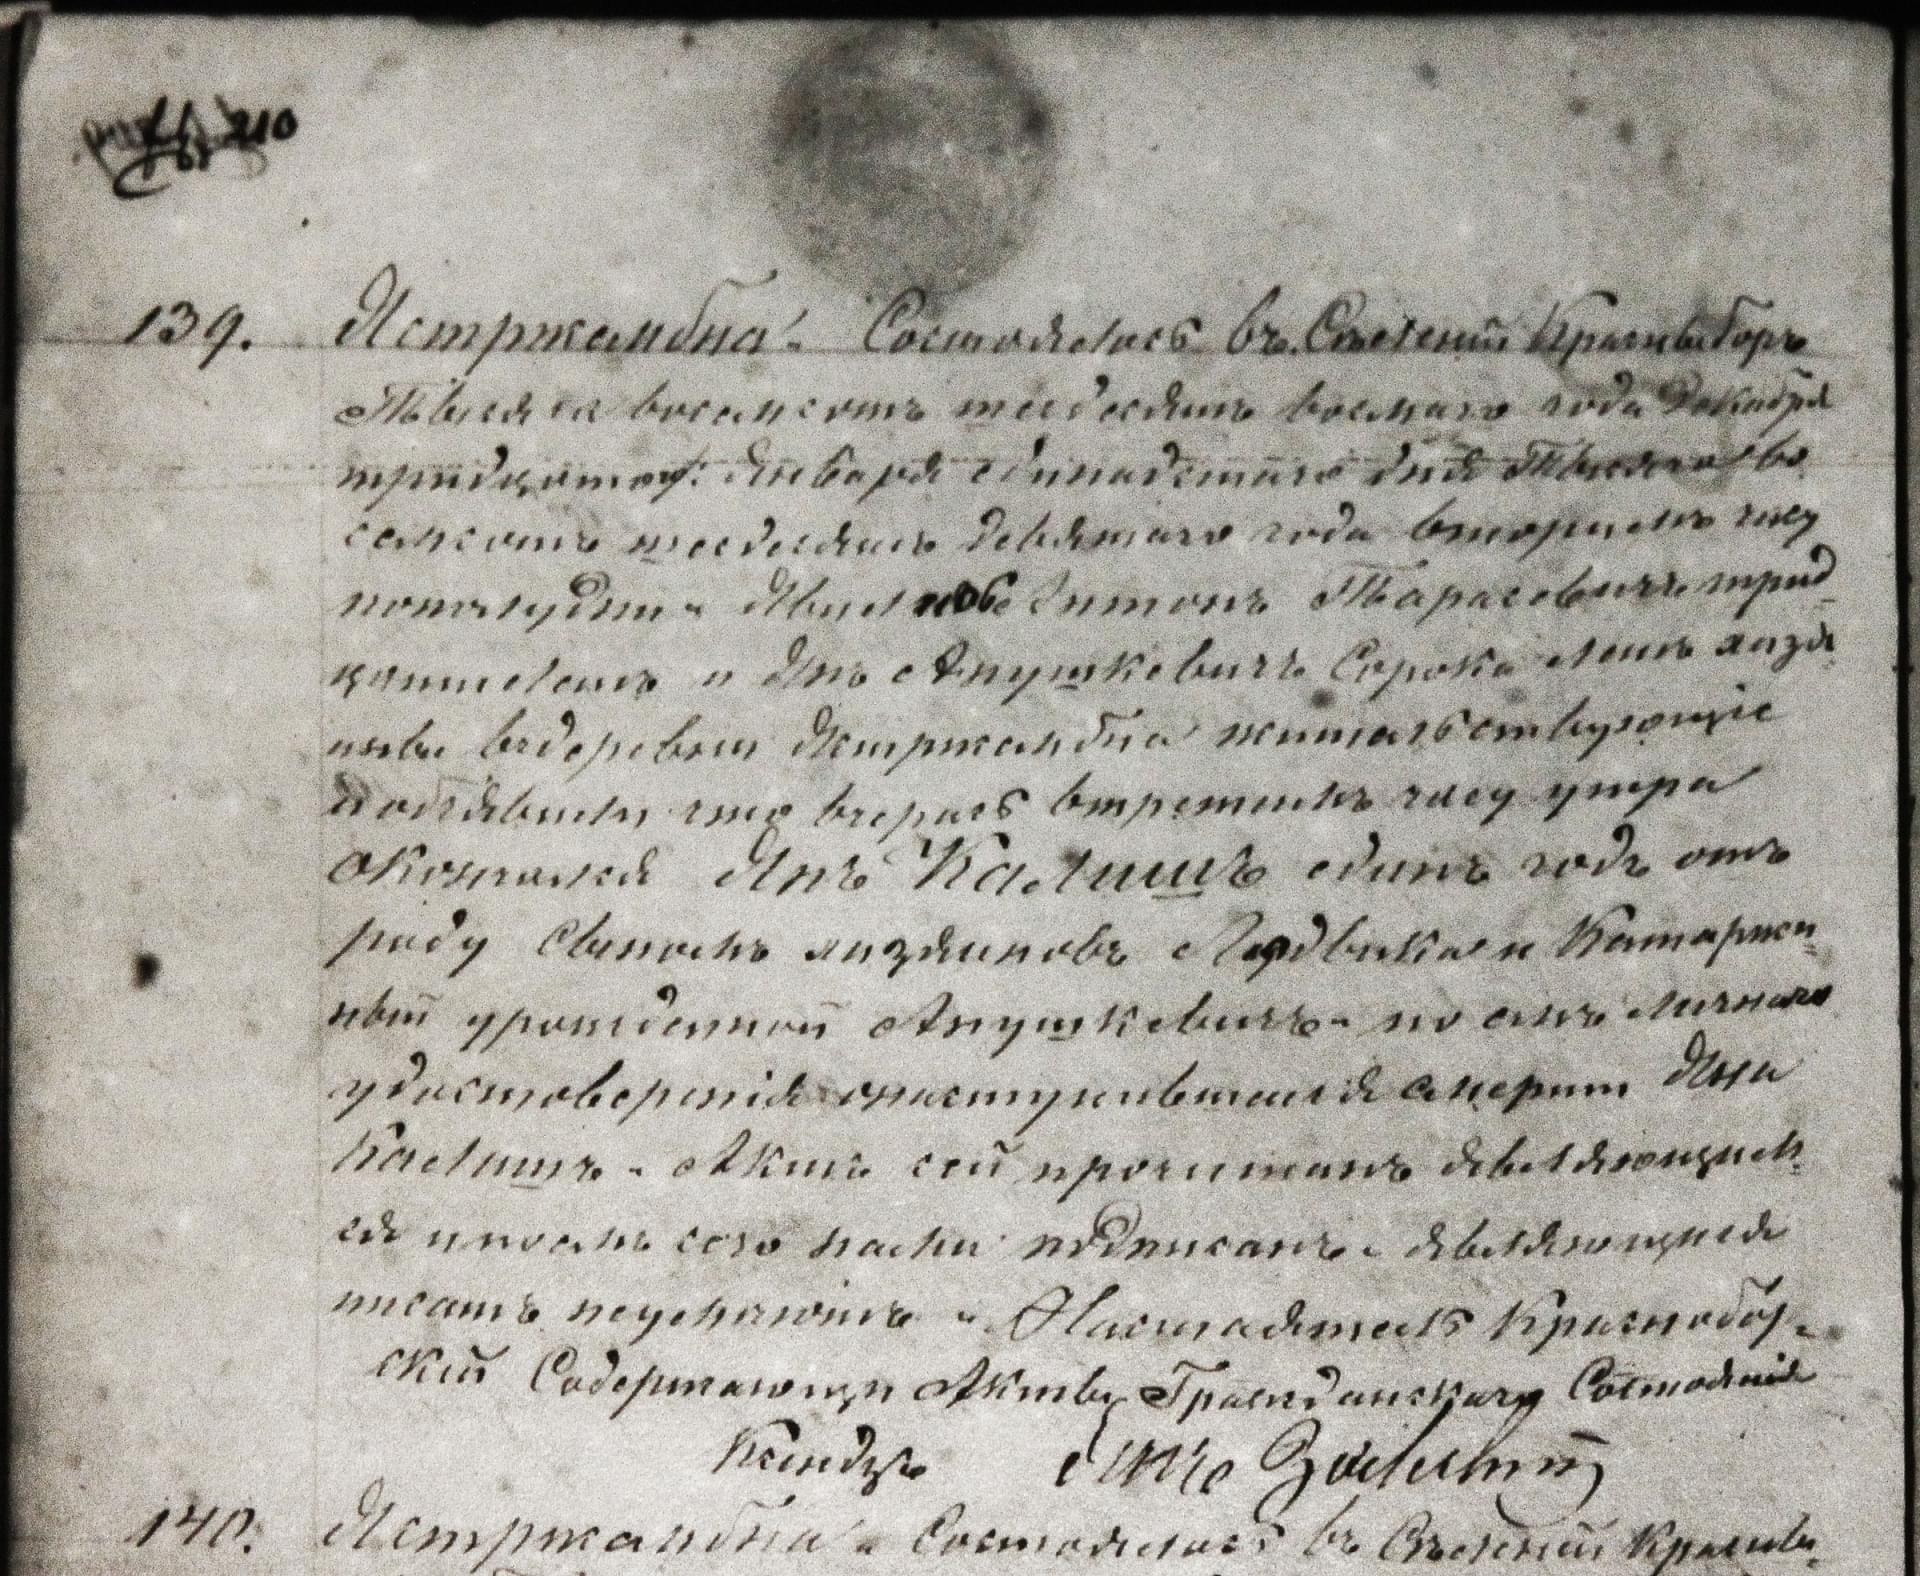 210
139. Ястржамбна. Состоялось въ Селеніи Красныборъ
Тысяча восемсотъ шесдесятъ восмаго года Декабря
тридцатого/: Января единадстаго дня Тысяча во
семсотъ шесдесятъ девятаго года вторимъ часу
пополудни. Явились Антонъ Тарасевичъ трид
цатилетъ и Янъ Анушкевичъ Сорока летъ хозя
ины въдеревни Ястржамбна жительствующіе
и объявили что вчерась втретимъ часу утра
окончался Янъ Калишъ единъ годъ отъ
роду Сыномъ хозяиновъ Людвика и Катаржи
ный урожденной Анушкевичъ. по семъ личнаго
удостоверенія онаступившейся смерти Яна
Калишъ. Актъ сей прочитанъ являющим
ся ипосль сего нами подписанъ. являющися
писать неумеютъ. Настоятель Краснобор-
скій Содержающи Акты Гражданскаго Состоянія
Ксендзъ
140. Ястржамбна. Состоялось въ Селеніи Красны